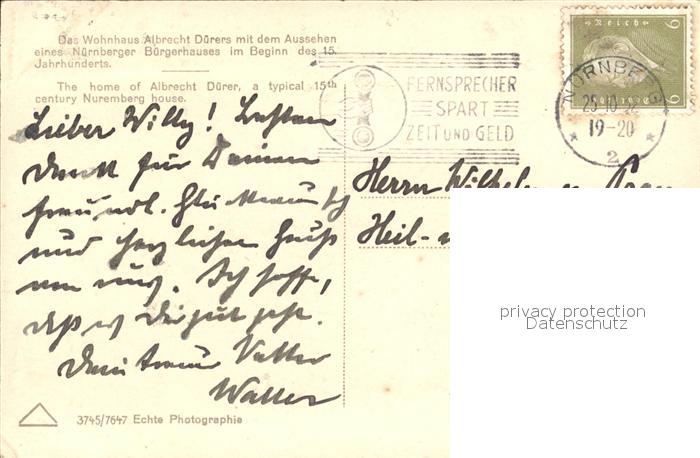 Das Wohnhaus Albrecht Dürers mit dem Aussehen
eines Nürnberger Bürgerhauses im Beginn des 15.
Jahrhunderts.
The home of Albrecht Dürer, a typical 15th
century Nuremberg house.
FERNSPRECHER
SPART
ZEIT UND GELD
NÜRNBERG
19-20
2
Reich
6 6
Lieber Willy! Besten
Dank für Deinen
freundl. Glückwunsch
und herzlichen Gruß
von uns. Ich hoffe,
daß es Dir gut geht.
Dein treuer Vetter
Walter
Herrn Wilhelm
Heil-
privacy protection
Datenschutz
3745/7647 Echte Photographie